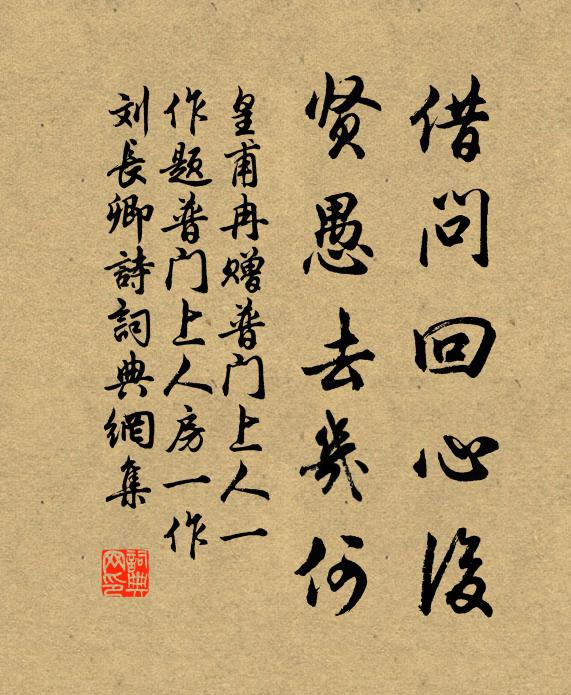 借问回心後
贤愚去幾何
皇甫冉赠普门上人一
作题普门上人房一作
刘長卿詩詞典網集
詞典
网印